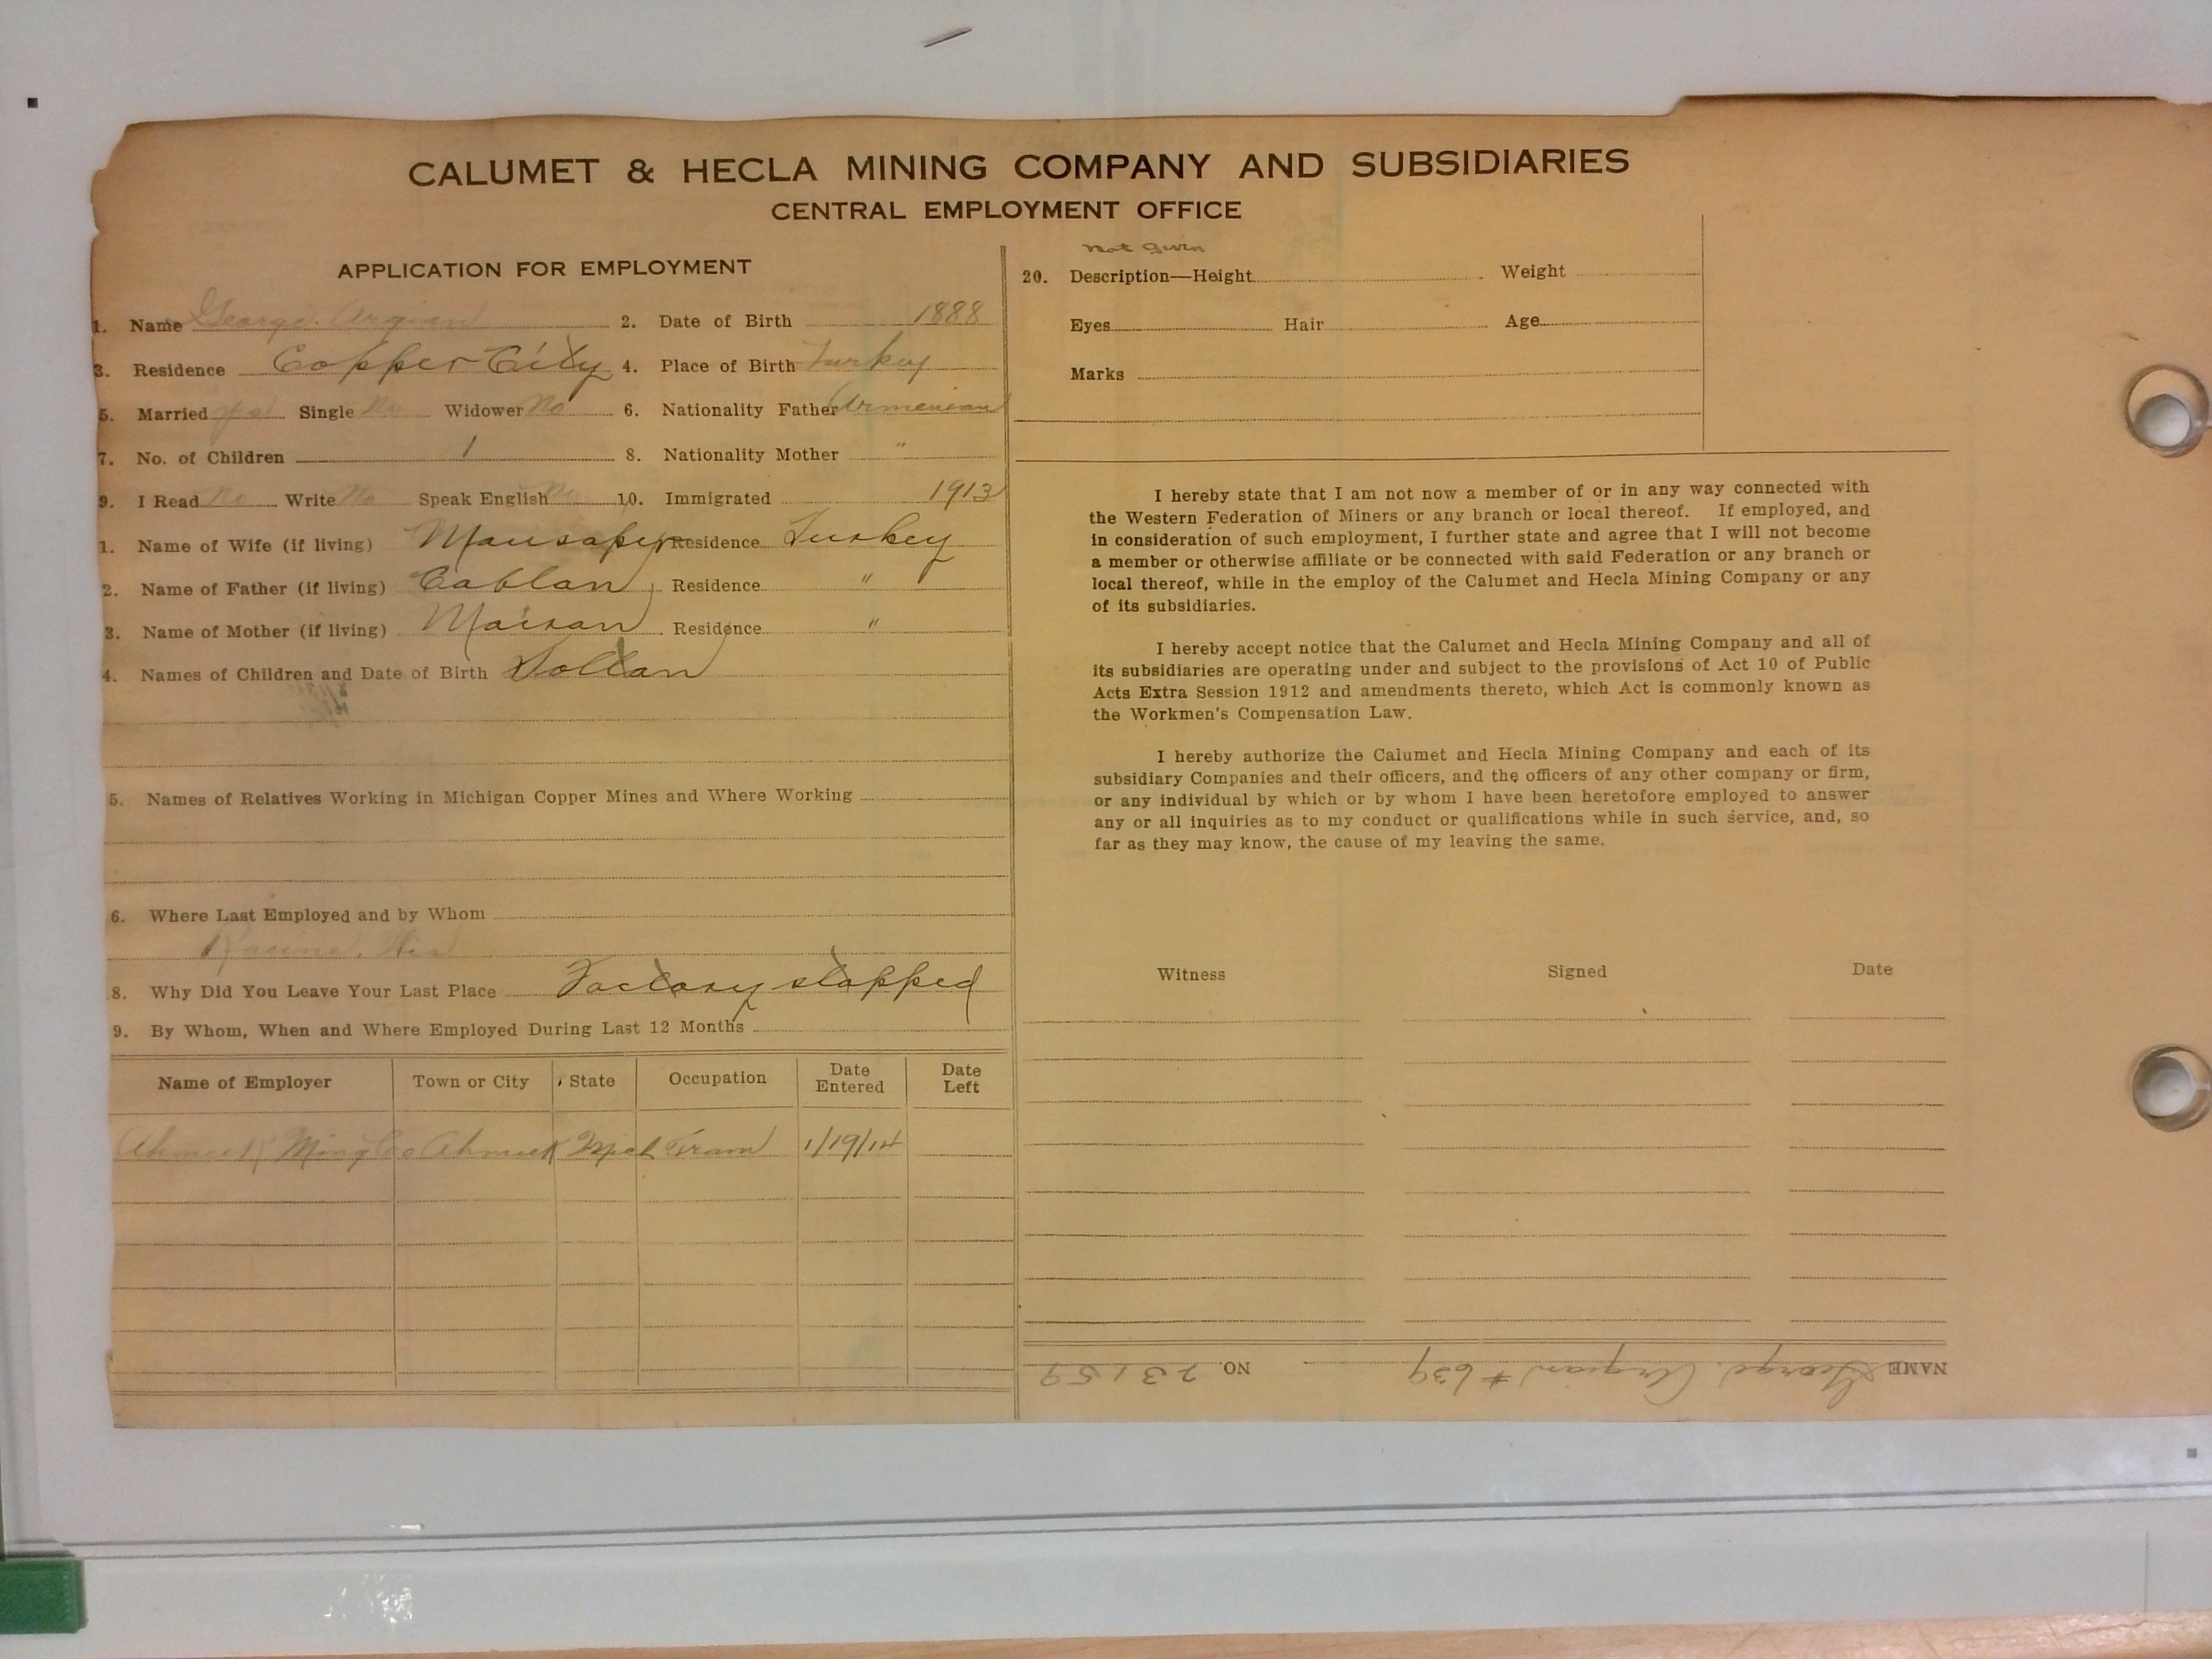 CALUMET & HECLA MINING COMPANY AND SUBSIDIARIES
CENTRAL EMPLOYMENT OFFICE
APPLICATION FOR EMPLOYMENT
1. Name George Argian 2. Date of Birth 1888
3. Residence Copper City 4. Place of Birth Turkey
5. Married yes Single No Widower No 6. Nationality Father Armenian
7. No. of Children 1 8. Nationality Mother "
9. I Read No Write No Speak English No 10. Immigrated 1913
1. Name of Wife (if living) Residence Turkey
2. Name of Father (if living) Cablan Residence "
3. Name of Mother (if living) Residence "
4. Names of Children and Date of Birth
5. Names of Relatives Working in Michigan Copper Mines and Where Working
6. Where Last Employed and by Whom
Racine, Wis
8. Why Did You Leave Your Last Place Factory stopped
9. By Whom, When and Where Employed During Last 12 Months
Name of Employer Town or City State Occupation Date Entered Date Left
Ahmeek Ming Co Ahmeek Mich Tram 1/19/14
not givin
20. Description—Height Weight
Eyes Hair Age
Marks
I hereby state that I am not now a member of or in any way connected with
the Western Federation of Miners or any branch or local thereof. If employed, and
in consideration of such employment, I further state and agree that I will not become
a member or otherwise affiliate or be connected with said Federation or any branch or
local thereof, while in the employ of the Calumet and Hecla Mining Company or any
of its subsidiaries.
I hereby accept notice that the Calumet and Hecla Mining Company and all of
its subsidiaries are operating under and subject to the provisions of Act 10 of Public
Acts Extra Session 1912 and amendments thereto, which Act is commonly known as
the Workmen's Compensation Law.
I hereby authorize the Calumet and Hecla Mining Company and each of its
subsidiary Companies and their officers, and the officers of any other company or firm,
or any individual by which or by whom I have been heretofore employed to answer
any or all inquiries as to my conduct or qualifications while in such service, and, so
far as they may know, the cause of my leaving the same.
Witness Signed Date
NAME George Argian #639 NO. 23159